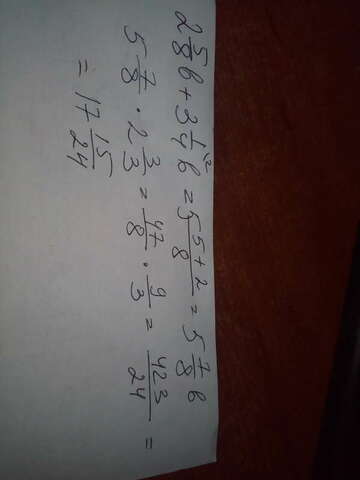 2 5/8 b + 3 1/4 \2 b = 5 5+2/8 = 5 7/8 b
5 7/8 · 2 3/3 = 47/8 · 9/3 = 423/24 =
= 17 15/24